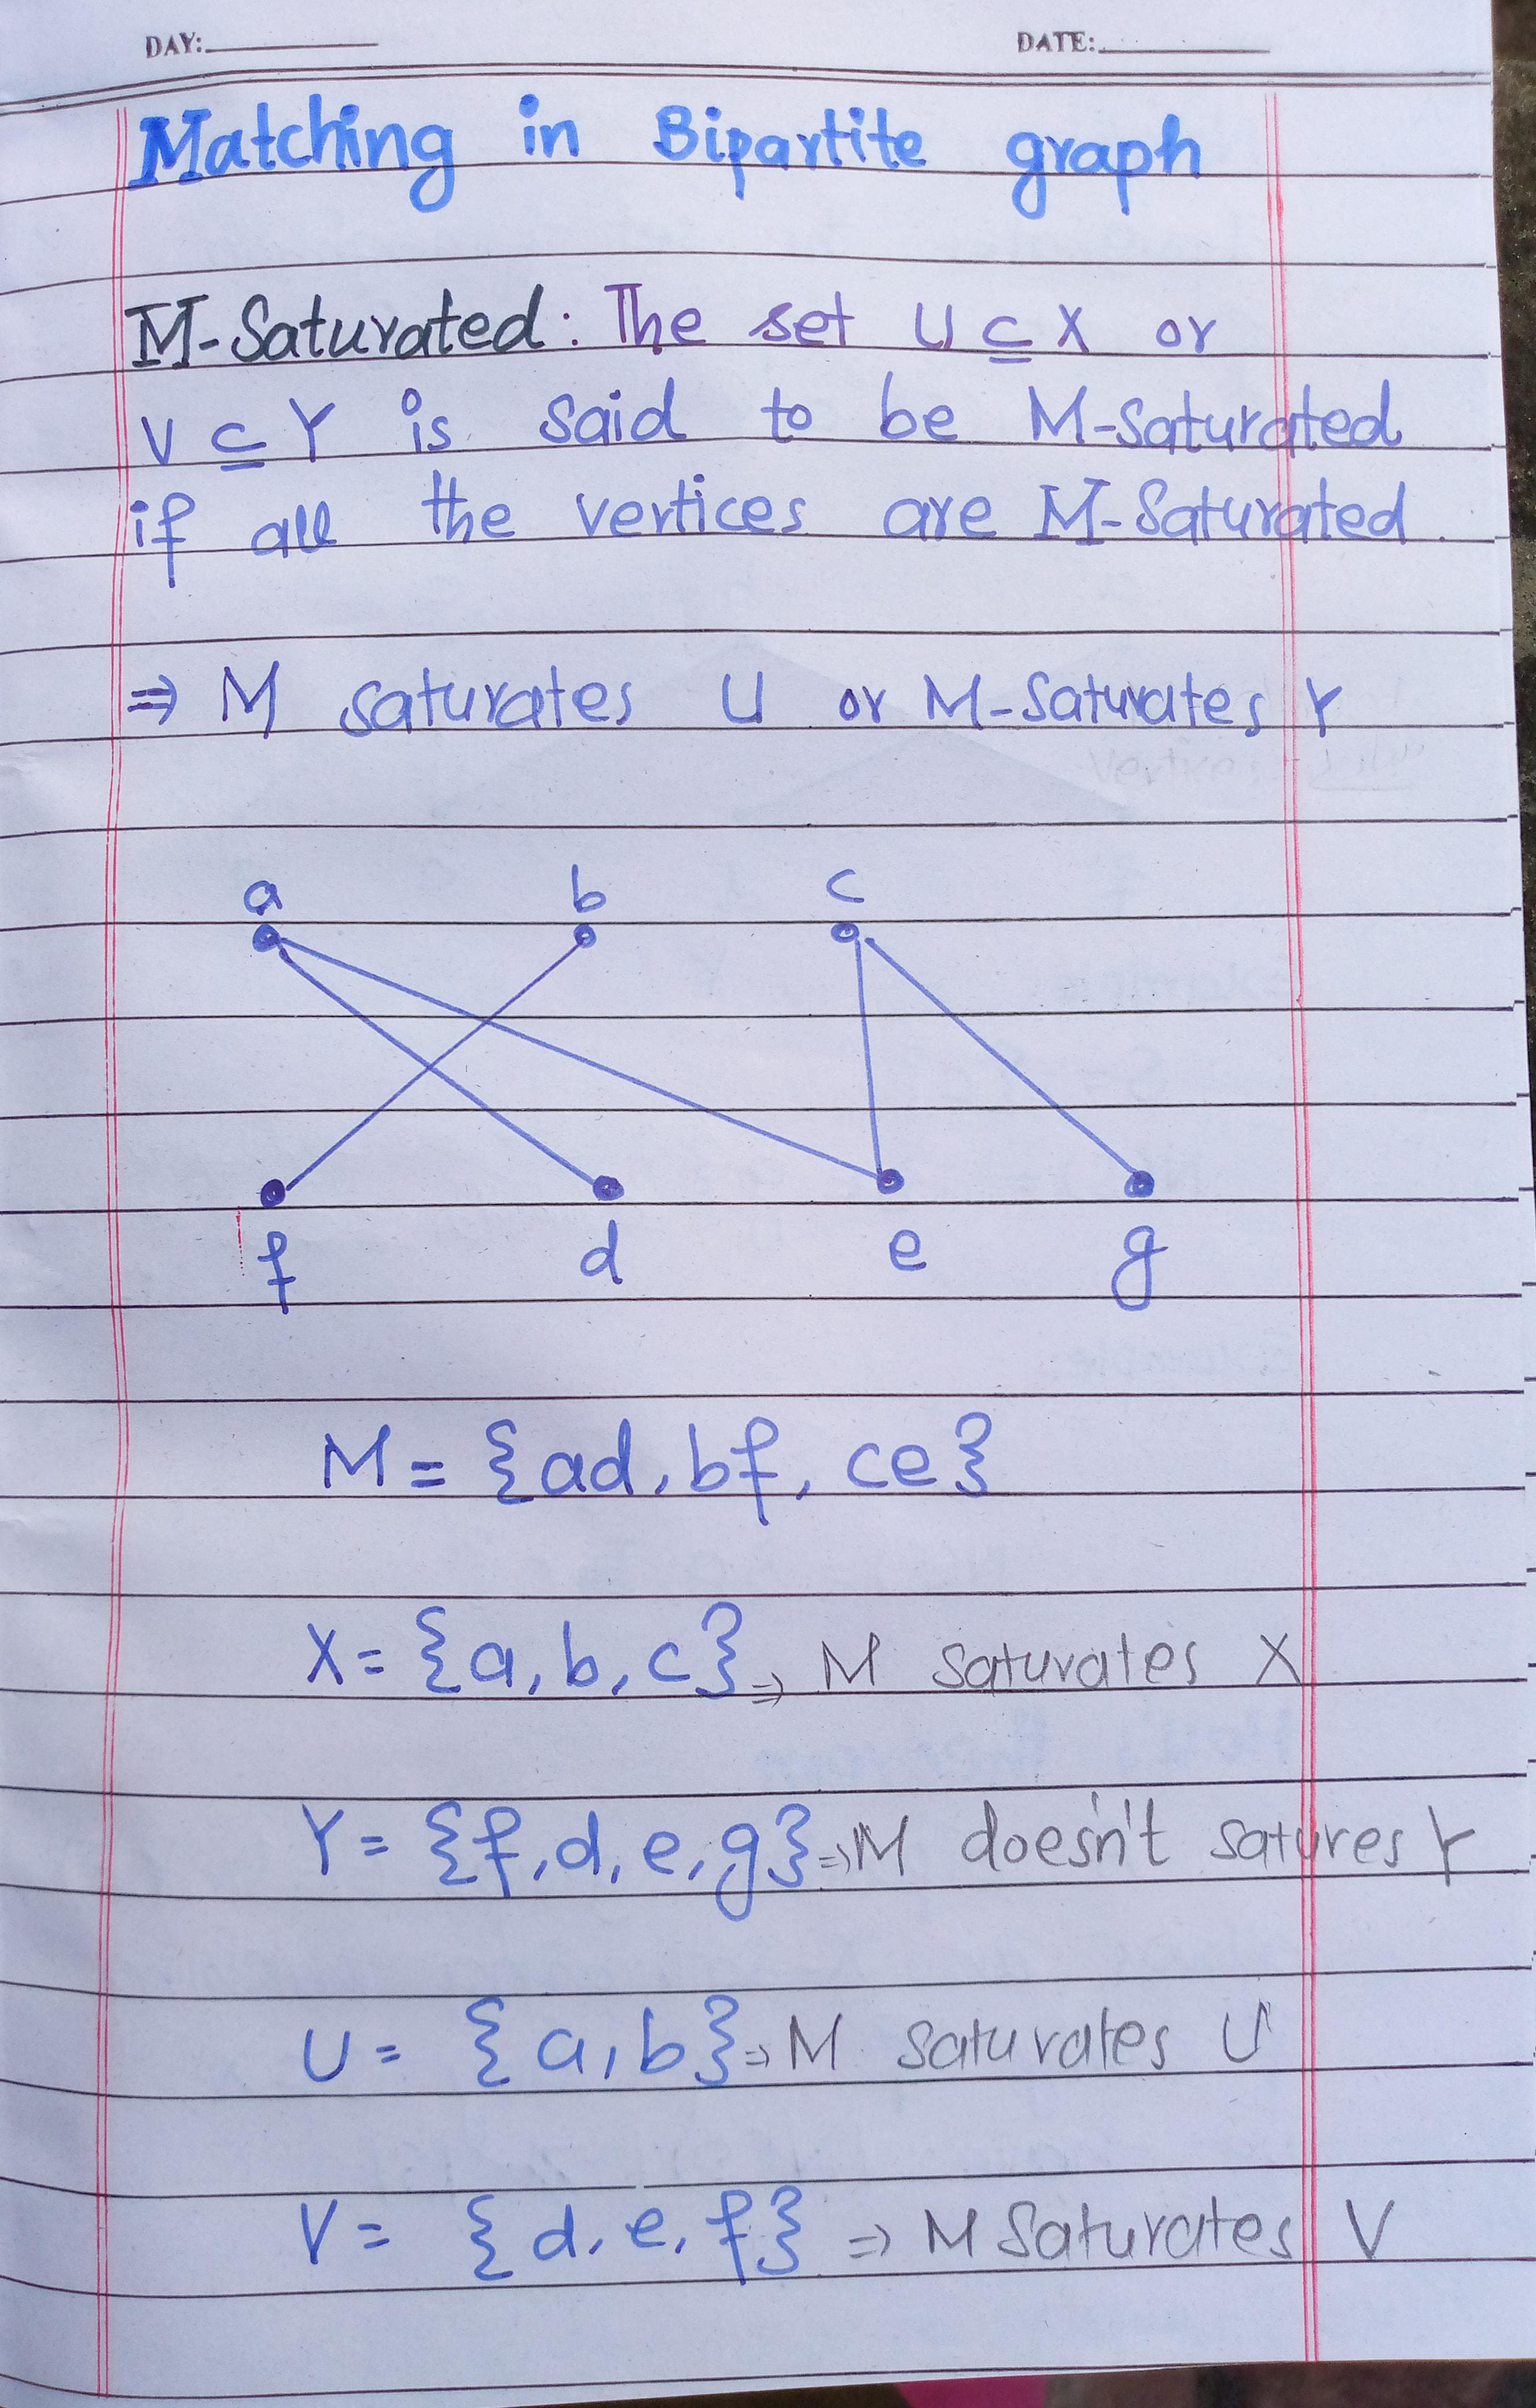 DAY: DATE:
Matching in Bipartite graph
M-Saturated: The set U ⊆ X or
V ⊆ Y is said to be M-saturated
if all the vertices are M-Saturated.
⇒ M saturates U or M-Saturates Y
a b c
f d e g
M = {ad, bf, ce}
X = {a, b, c} ⇒ M saturates X
Y = {f, d, e, g} ⇒ M doesn't satures Y
U = {a, b} ⇒ M saturates U
V = {d, e, f} ⇒ M Saturates V